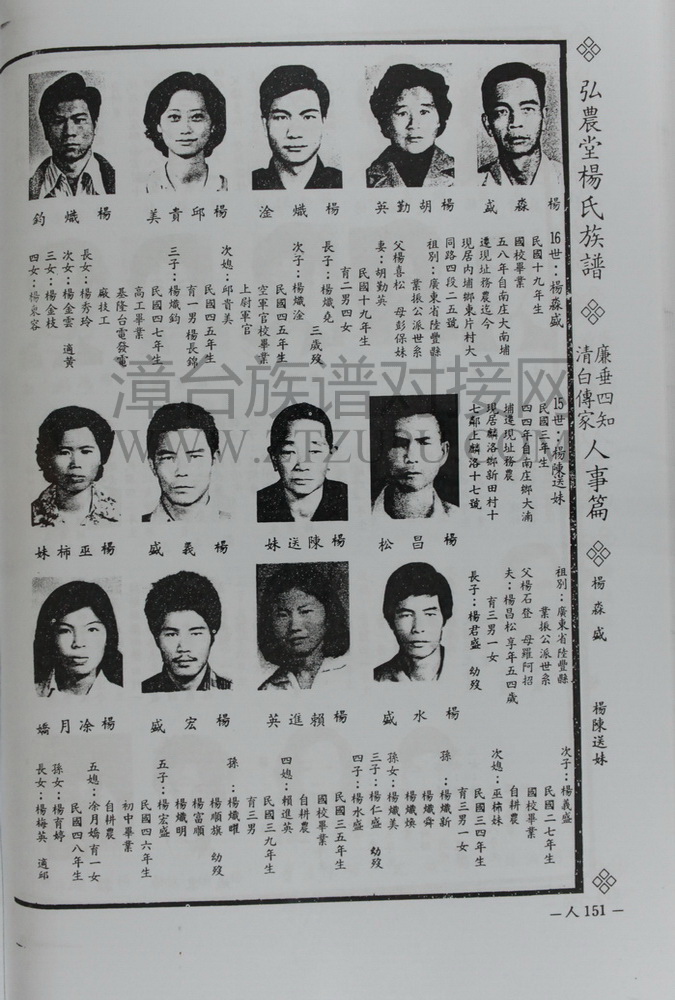 弘農堂楊氏族譜
廉垂四知
清白傳家
人事篇
楊森盛
楊陳送妹
楊森盛
楊胡勤英
楊熾淦
楊邱貴美
楊熾鈞
16世：楊森盛
民國十九年生
國校畢業
五八年自南庄大南埔
遷現址務農迄今
現居內埔鄉東片村大
同路四段二五號
祖別：廣東省陸豐縣
業振公派世系
父楊喜松 母彭保妹
妻：胡勤英
民國十九年生
育二男四女
長子：楊熾堯 三歲歿
次子：楊熾淦
民國四五年生
空軍官校畢業
上尉軍官
次媳：邱貴美
民國四五年生
育一男楊長錦
三子：楊熾鈞
民國四七年生
高工畢業
基隆台電發電
廠技工
長女：楊秀玲
次女：楊金雲 適黃
三女：楊金枝
四女：楊泉容
15世：楊陳送妹
民國三年生
四四年自南庄鄉大湳
埔遷現址務農
現居麟洛鄉新田村十
七鄰上麟洛十七號
楊昌松
楊陳送妹
楊義盛
楊巫柿妹
祖別：廣東省陸豐縣
業振公派世系
父楊石登 母羅阿招
夫：楊昌松享年五四歲
育三男一女
長子：楊君盛 幼歿
楊水盛
楊賴進英
楊宏盛
楊凃月嬌
次子：楊義盛
民國二七年生
國校畢業
自耕農
次媳：巫柿妹
民國三四年生
育三男一女
孫：楊熾新
楊熾舜
楊熾煥
孫女：楊熾美
三子：楊仁盛 幼歿
四子：楊水盛
民國三五年生
國校畢業
自耕農
四媳：賴進英
民國三九年生
育三男
孫：楊熾曜
楊順旗 幼歿
楊富順
楊熾明
五子：楊宏盛
民國四六年生
初中畢業
自耕農
五媳：凃月嬌育一女
民國四八年生
孫女：楊育婷
長女：楊梅英 適邱
—人151—
漳台族谱对接网
WWW.ZTZUPU.COM